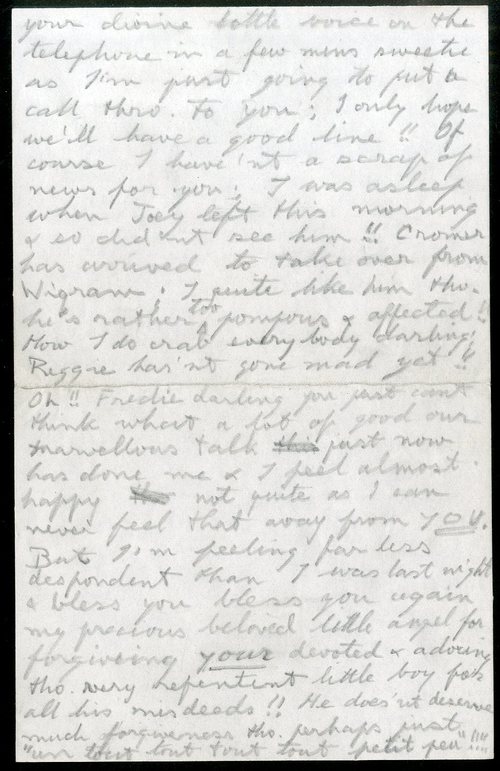 your divine little voice on the
telephone in a few mins sweetie
as I'm just going to put a
call thro. to you; I only hope
we'll have a good line!! Of
course I have'nt a scrap of
news for you; I was asleep
when Joey left this morning
& so did'nt see him!! Cromer
has arrived to take over from
Wigram; I quite like him tho.
he's rather too pompous & affected!!
How I do crab everybody darling!
Reggie has'nt gone mad yet!!
Oh!! Fredie darling you just can't
think what a lot of good our
marvellous talk this just now
has done me & I feel almost
happy tho not quite as I can
never feel that away from YOU.
But I'm feeling far less
despondent than I was last night
& bless you bless you again
my precious beloved little angel for
forgiveing your devoted & adoring
tho. very repentent little boy for
all his misdeeds!! He does'nt deserve
much forgiveness tho. perhaps just
"un tout tout tout tout petit peu"!!!!